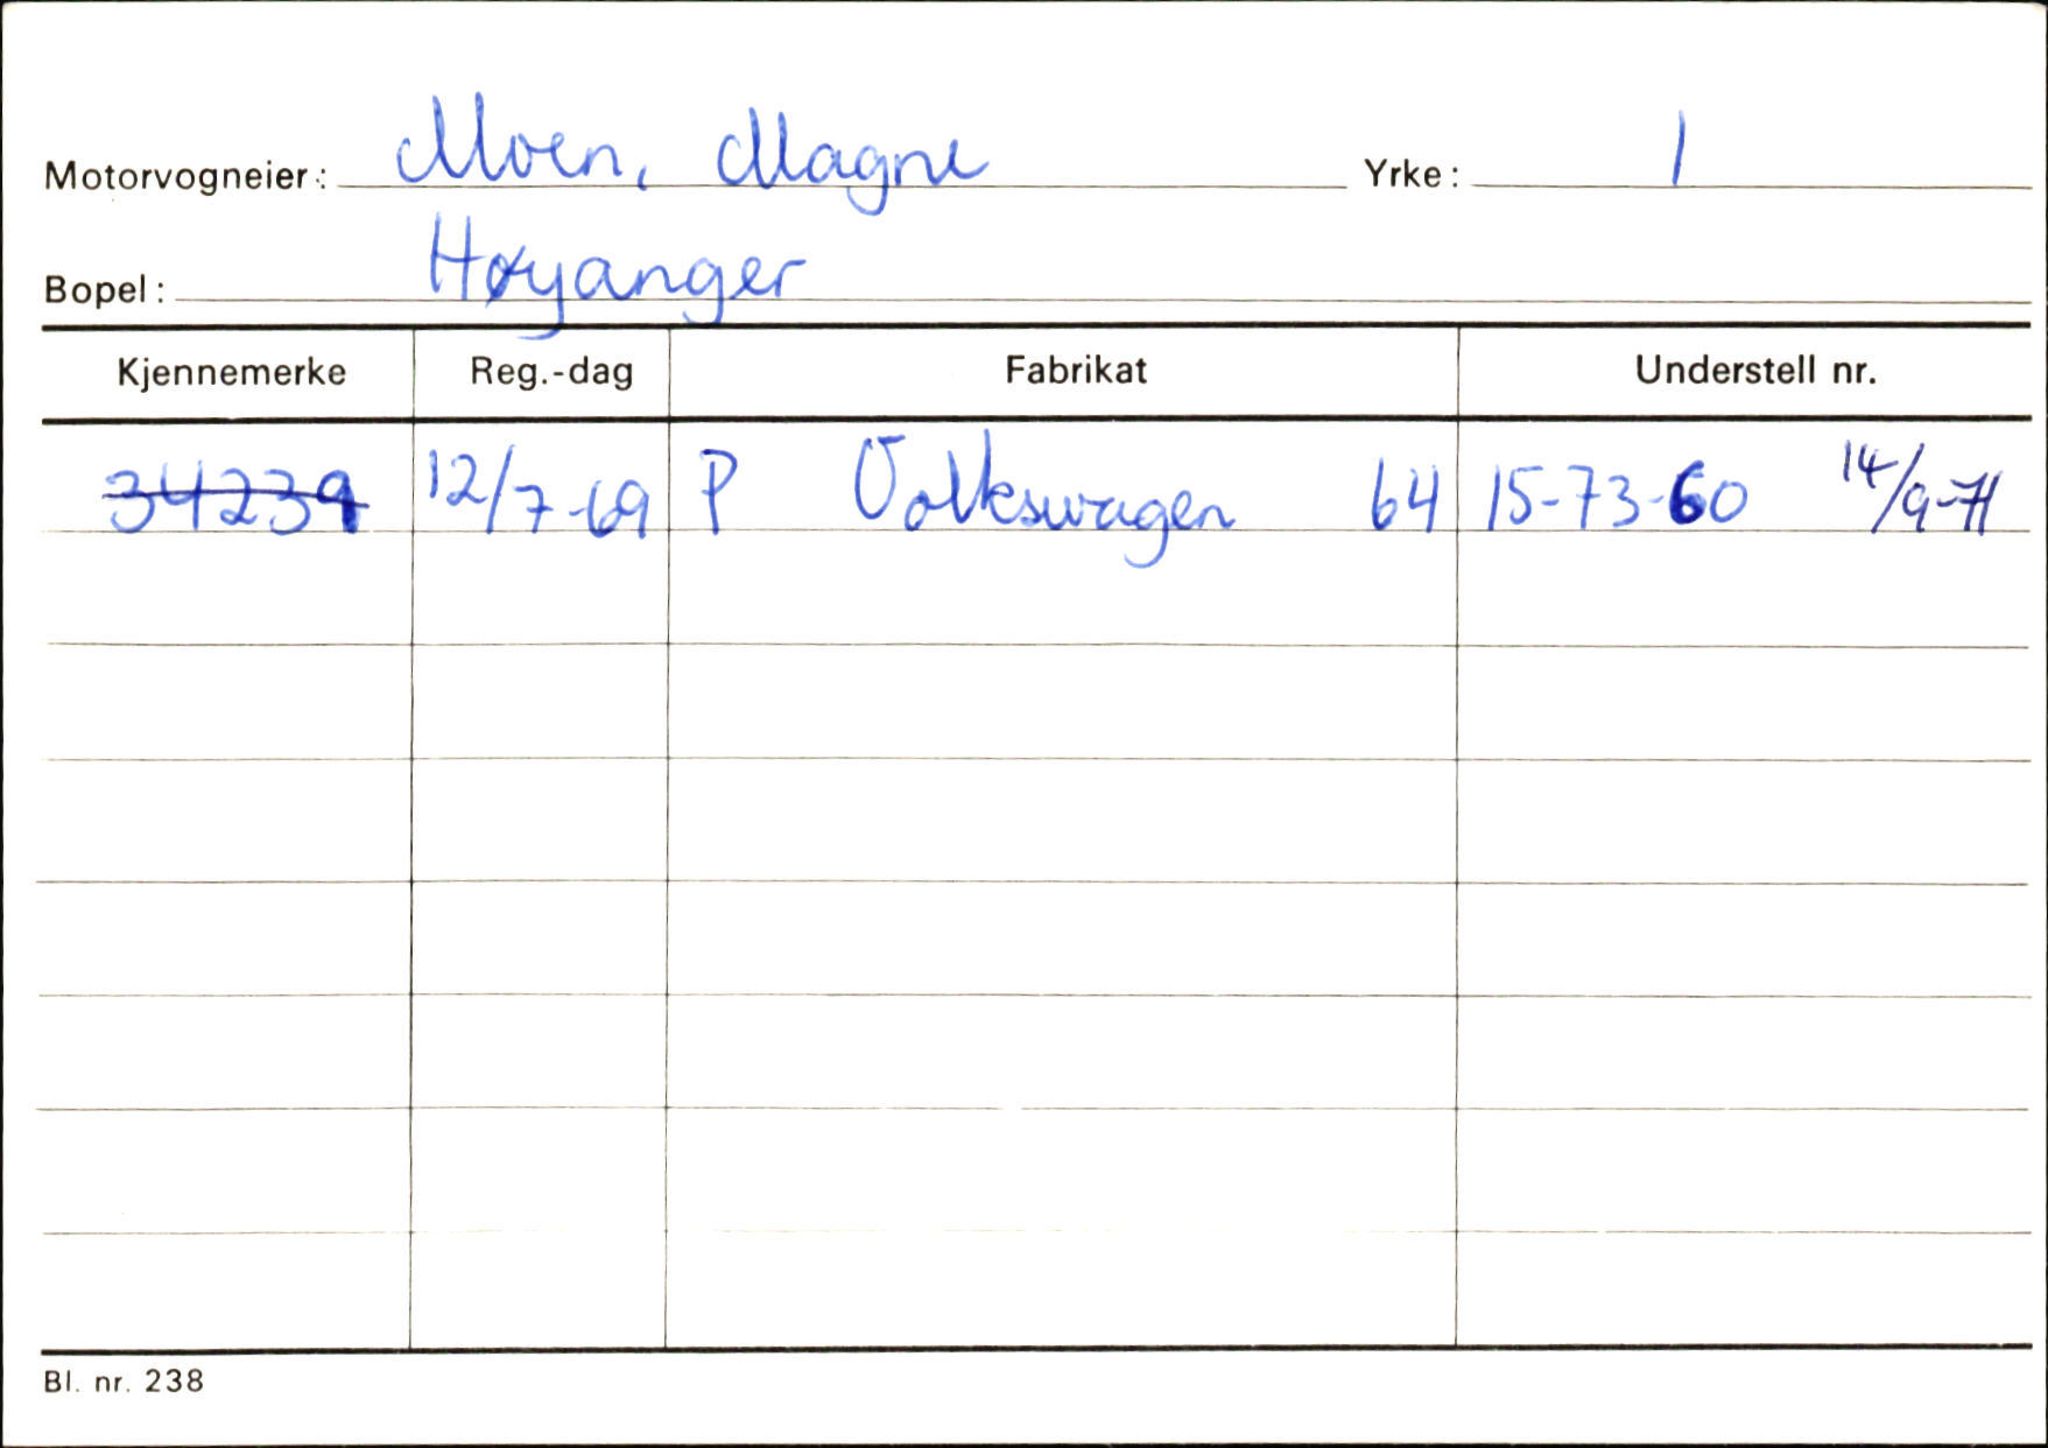 Motorvogneier: Moen, Magne Yrke: 1
Bopel: Høyanger
Kjennemerke Reg.-dag Fabrikat Understell nr.
34239 12/7-69 P Volkswagen 64 15-73-60 14/9-71
Bl. nr. 238